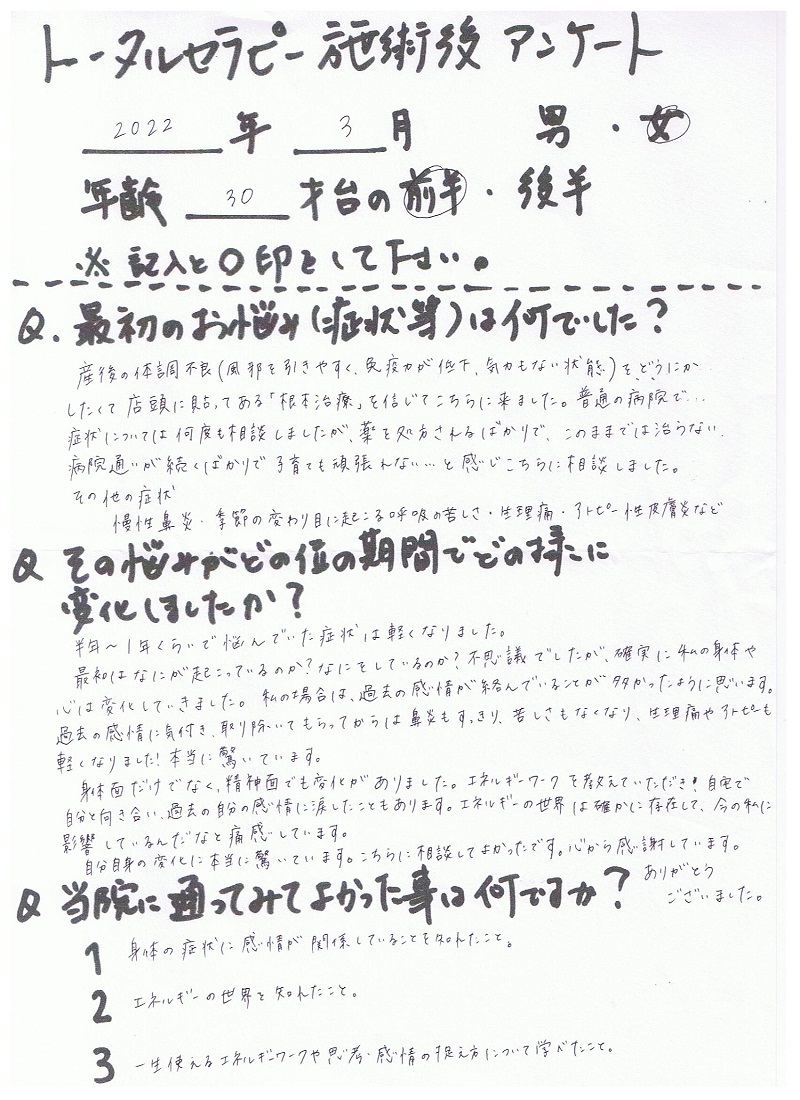 トータルセラピー施術後 アンケート
2022 年 3 月 男・女
年齢 30 才台の 前半・後半
※記入と○印をして下さい。
Q. 最初のお悩み(症状等)は何でした?
産後の体調不良(風邪を引きやすく、免疫力が低下、気力もない状態)をどうにか
したくて店頭に貼ってある「根本治療」を信じてこちらに来ました。普通の病院で…
症状については何度も相談しましたが、薬を処方されるばかりで、このままでは治らない、
病院通いが続くばかりで子育ても頑張れない…と感じこちらに相談しました。
その他の症状
慢性鼻炎・季節の変わり目に起こる呼吸の苦しさ・生理痛・アトピー性皮膚炎など
Q その悩みがどの位の期間でどの様に
変化しましたか?
半年~1年くらいで悩んでいた症状は軽くなりました。
最初はなにが起こっているのか?なにをしているのか?不思議でしたが、確実に私の身体や
心は変化していきました。私の場合は、過去の感情が絡んでいることが多かったように思います。
過去の感情に気付き、取り除いてもらってからは鼻炎もすっきり、苦しさもなくなり、生理痛やアトピーも
軽くなりました!本当に驚いています。
身体面だけでなく、精神面でも変化がありました。エネルギーワークを教えていただき!自宅で
自分と向き合い、過去の自分の感情に涙したこともあります。エネルギーの世界は確かに存在して、今の私に
影響しているんだなと痛感しています。
自分自身の変化に本当に驚いています。こちらに相談してよかったです。心から感謝しています。
ありがとう
ございました。
Q 当院に通ってみてよかった事は何ですか?
1 身体の症状に感情が関係していることを知れたこと。
2 エネルギーの世界を知れたこと。
3 一生使えるエネルギーワークや思考・感情の捉え方について学べたこと。